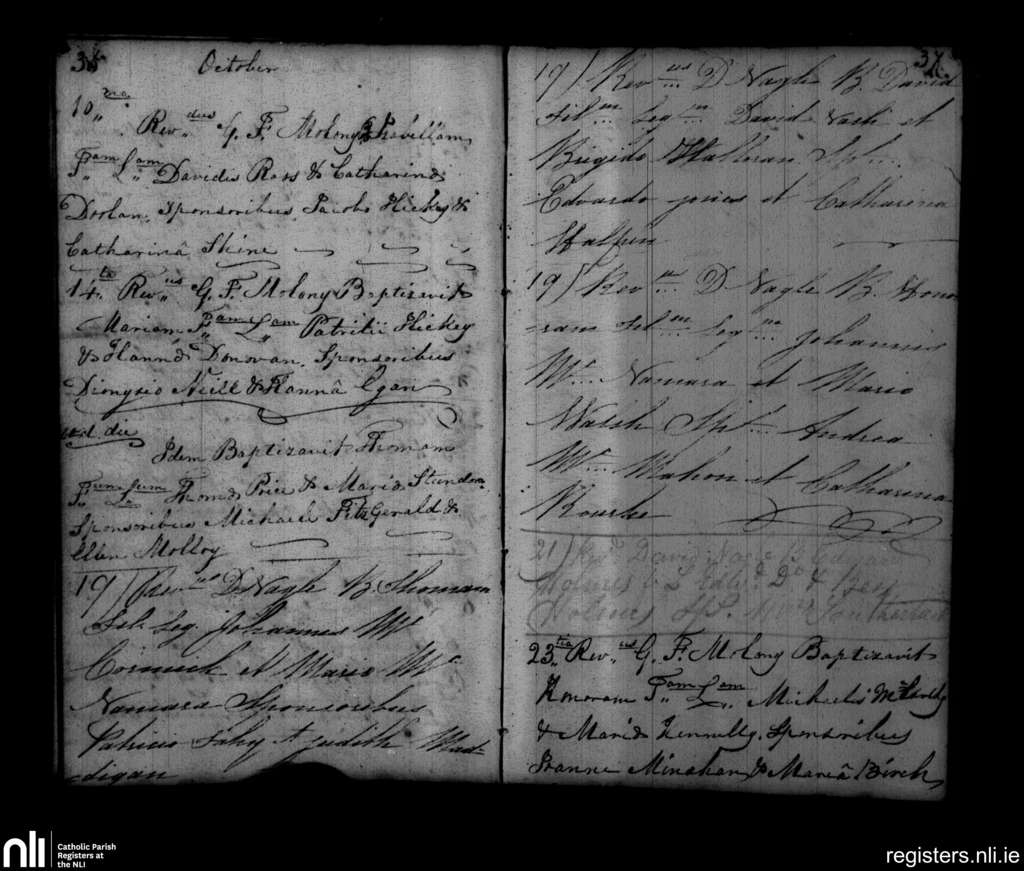 38 October
10,,
Rev,, dus G. F. Molony
F,, am L,, am Davidis Ross & Catharinæ
Doolan, Sponsoribus, Jacobo Hickey &
Catharinâ Skine
14,, ta Rev,, us G. F. Molony Baptizavit
Mariam F,, am L,, am Patritii Hickey
& Hannæ Donovan, Sponsoribus
Dionysio Neill & Hannâ Egan
die
Idem Baptizavit Thomam
F,, um L,, um Thomæ Price & Mariæ
Sponsoribus Michael FitzGerald &
Ellen Molloy
19) Rev us D Nagle B. Thomam
Fil Leg Johannes Mc
Cormick et Maria Mc
Namara Sponsoribus
Patricio Fahy & Judith Mad-
digan
37
19) Rev us D Nagle B. David
Fil m Leg m David Nash et
Brigida Halloran Sp
Edvardo et Catharina
Halpin
19) Rev us D Nagle B. Hono-
ram Fil m Leg m Johannis
Mc Namara et Maria
Walsh Sp Andrea
Mc Mahon et Catharina
Rourke
21) Revd David Nagle
Holmes
Holmes Sp.
23,, tia Rev,, us G. F. Molony Baptizavit
Honoram F,, am L,, am Michaelis
& Mariæ Kennelly, Sponsoribus
Joanne Minahan & Mariâ Birch
nli
Catholic Parish
Registers at
the NLI
registers.nli.ie